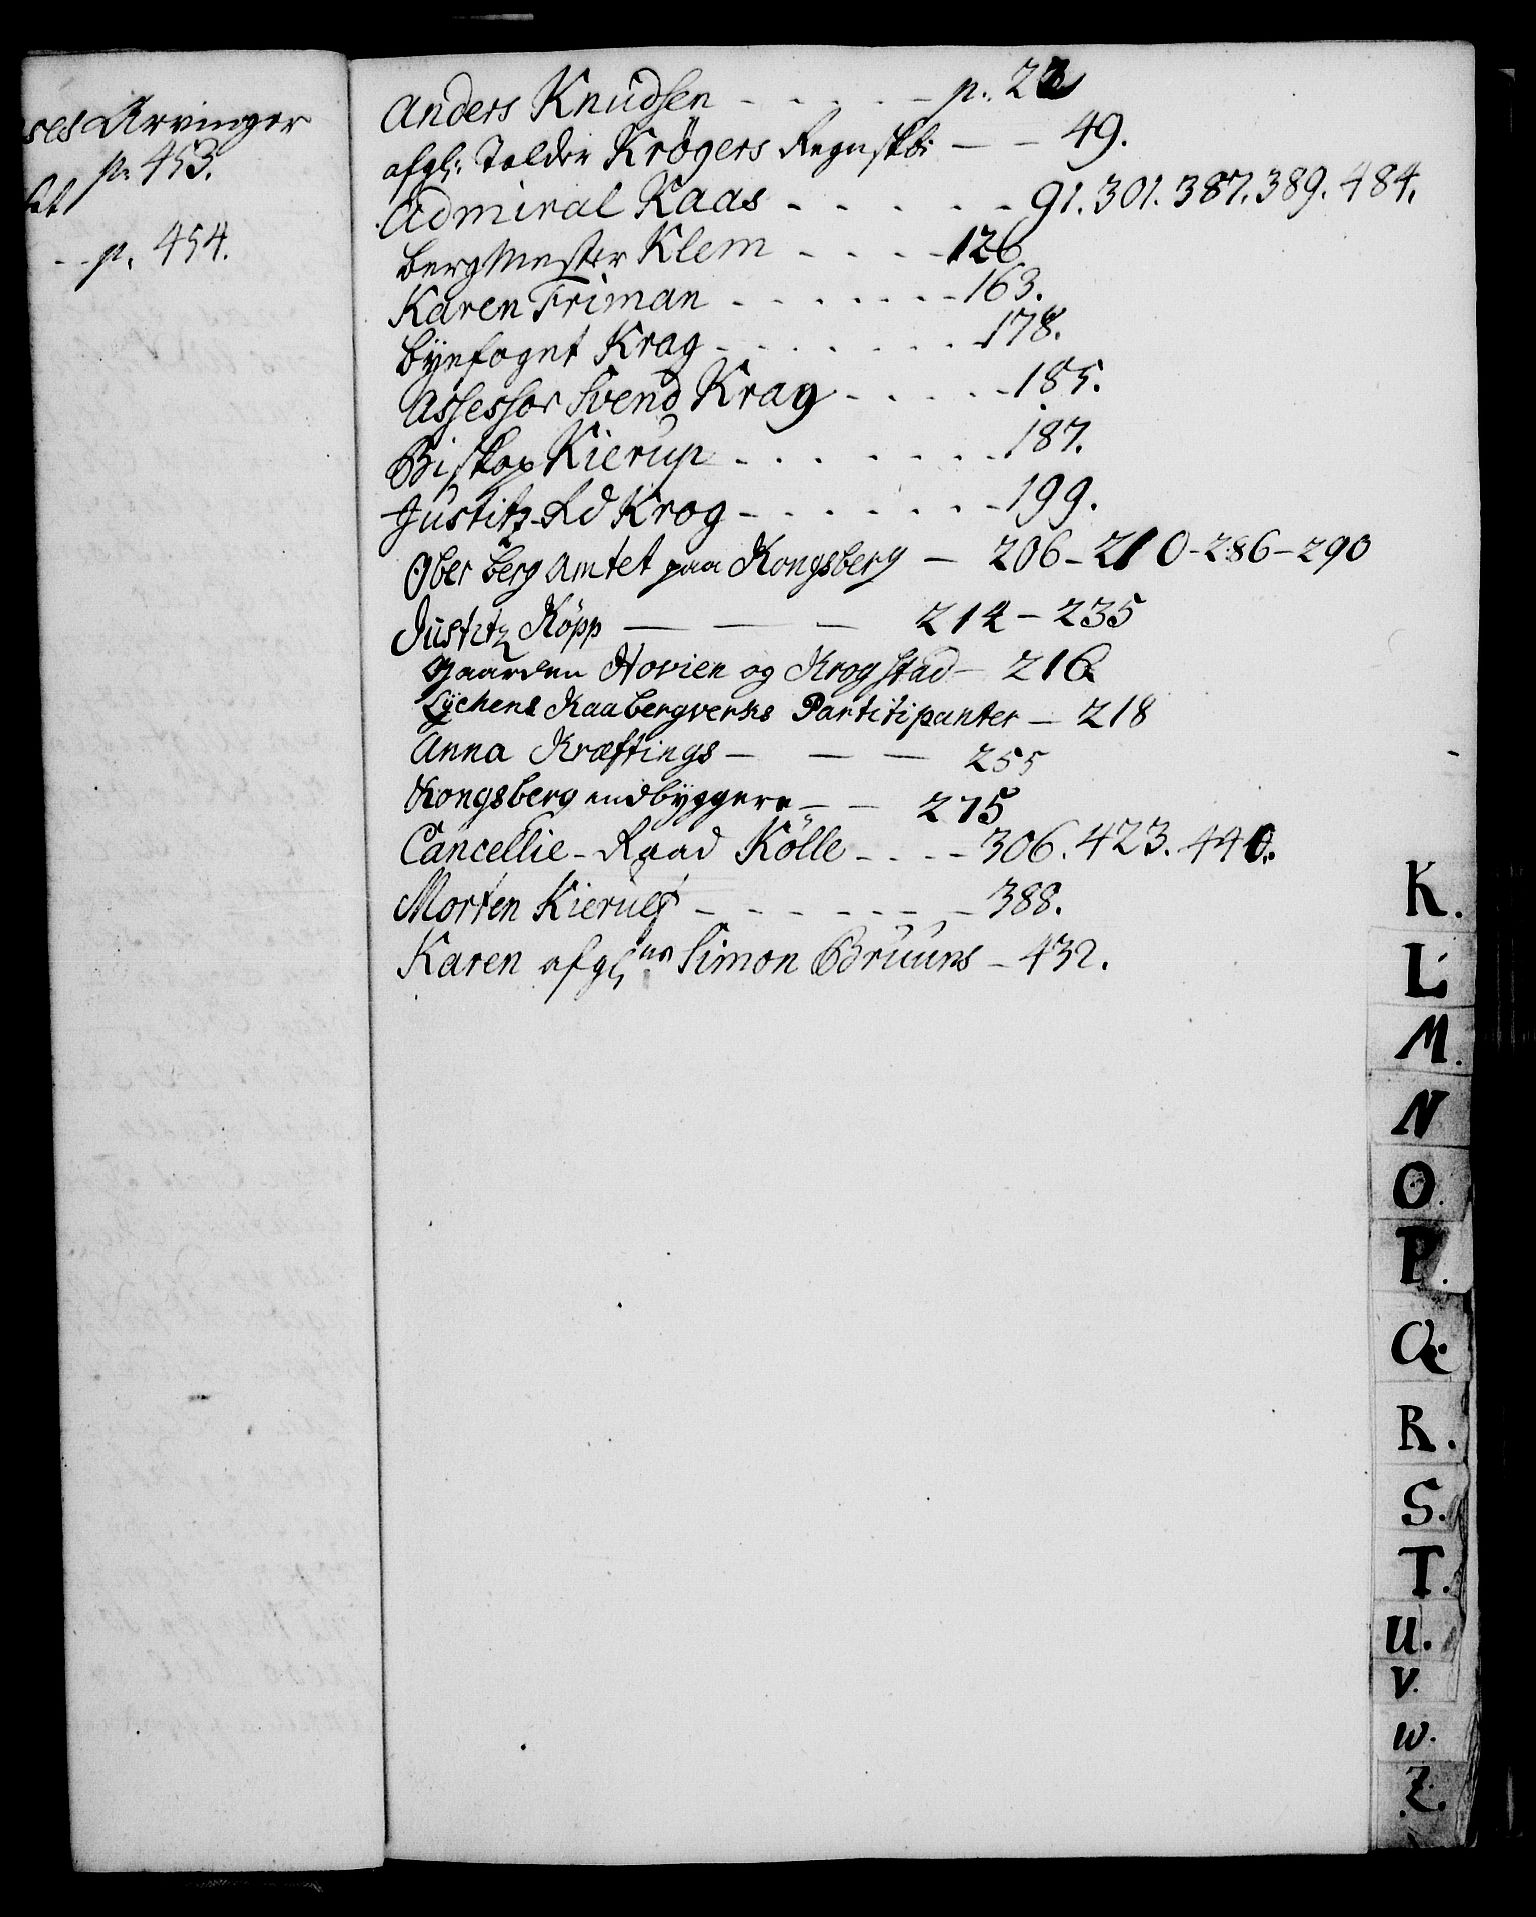 ses Arvinger
p. 453.
p. 454.
Anders Knudsen - - - - - p. 22
afgl: Tolder Krögers Regnskb: - - 49.
Admiral Kaas - - - - - 91. 301. 387. 389. 484.
BergMester Klem - - - - 126
Karen Friman - - - - - - - 163.
Byefoget Krag - - - - - - - 178.
Assessor Svend Krag - - - - - 185.
Biskop Kierup - - - - - - - 187.
Justitz-Rd Krog - - - - - - - 199.
Ober Berg Amtet paa Kongsberg - 206-210-286-290
Justitz Köpp - - - 214-235
Gaarden Hovien og Krogstad - 216
Lychens Kaabergverks Partitipanter - 218
Anna Kræftings - - - 255
Kongsberg indbyggere - - 275
Cancellie-Raad Kölle - - - - 306. 423. 440.
Morten Kierulf - - - - - - - 388.
Karen afgl: Simon Bruuns - 432.
K.
L
M.
N
O.
P.
Q
R.
S.
T.
U.
V.
W.
Z.